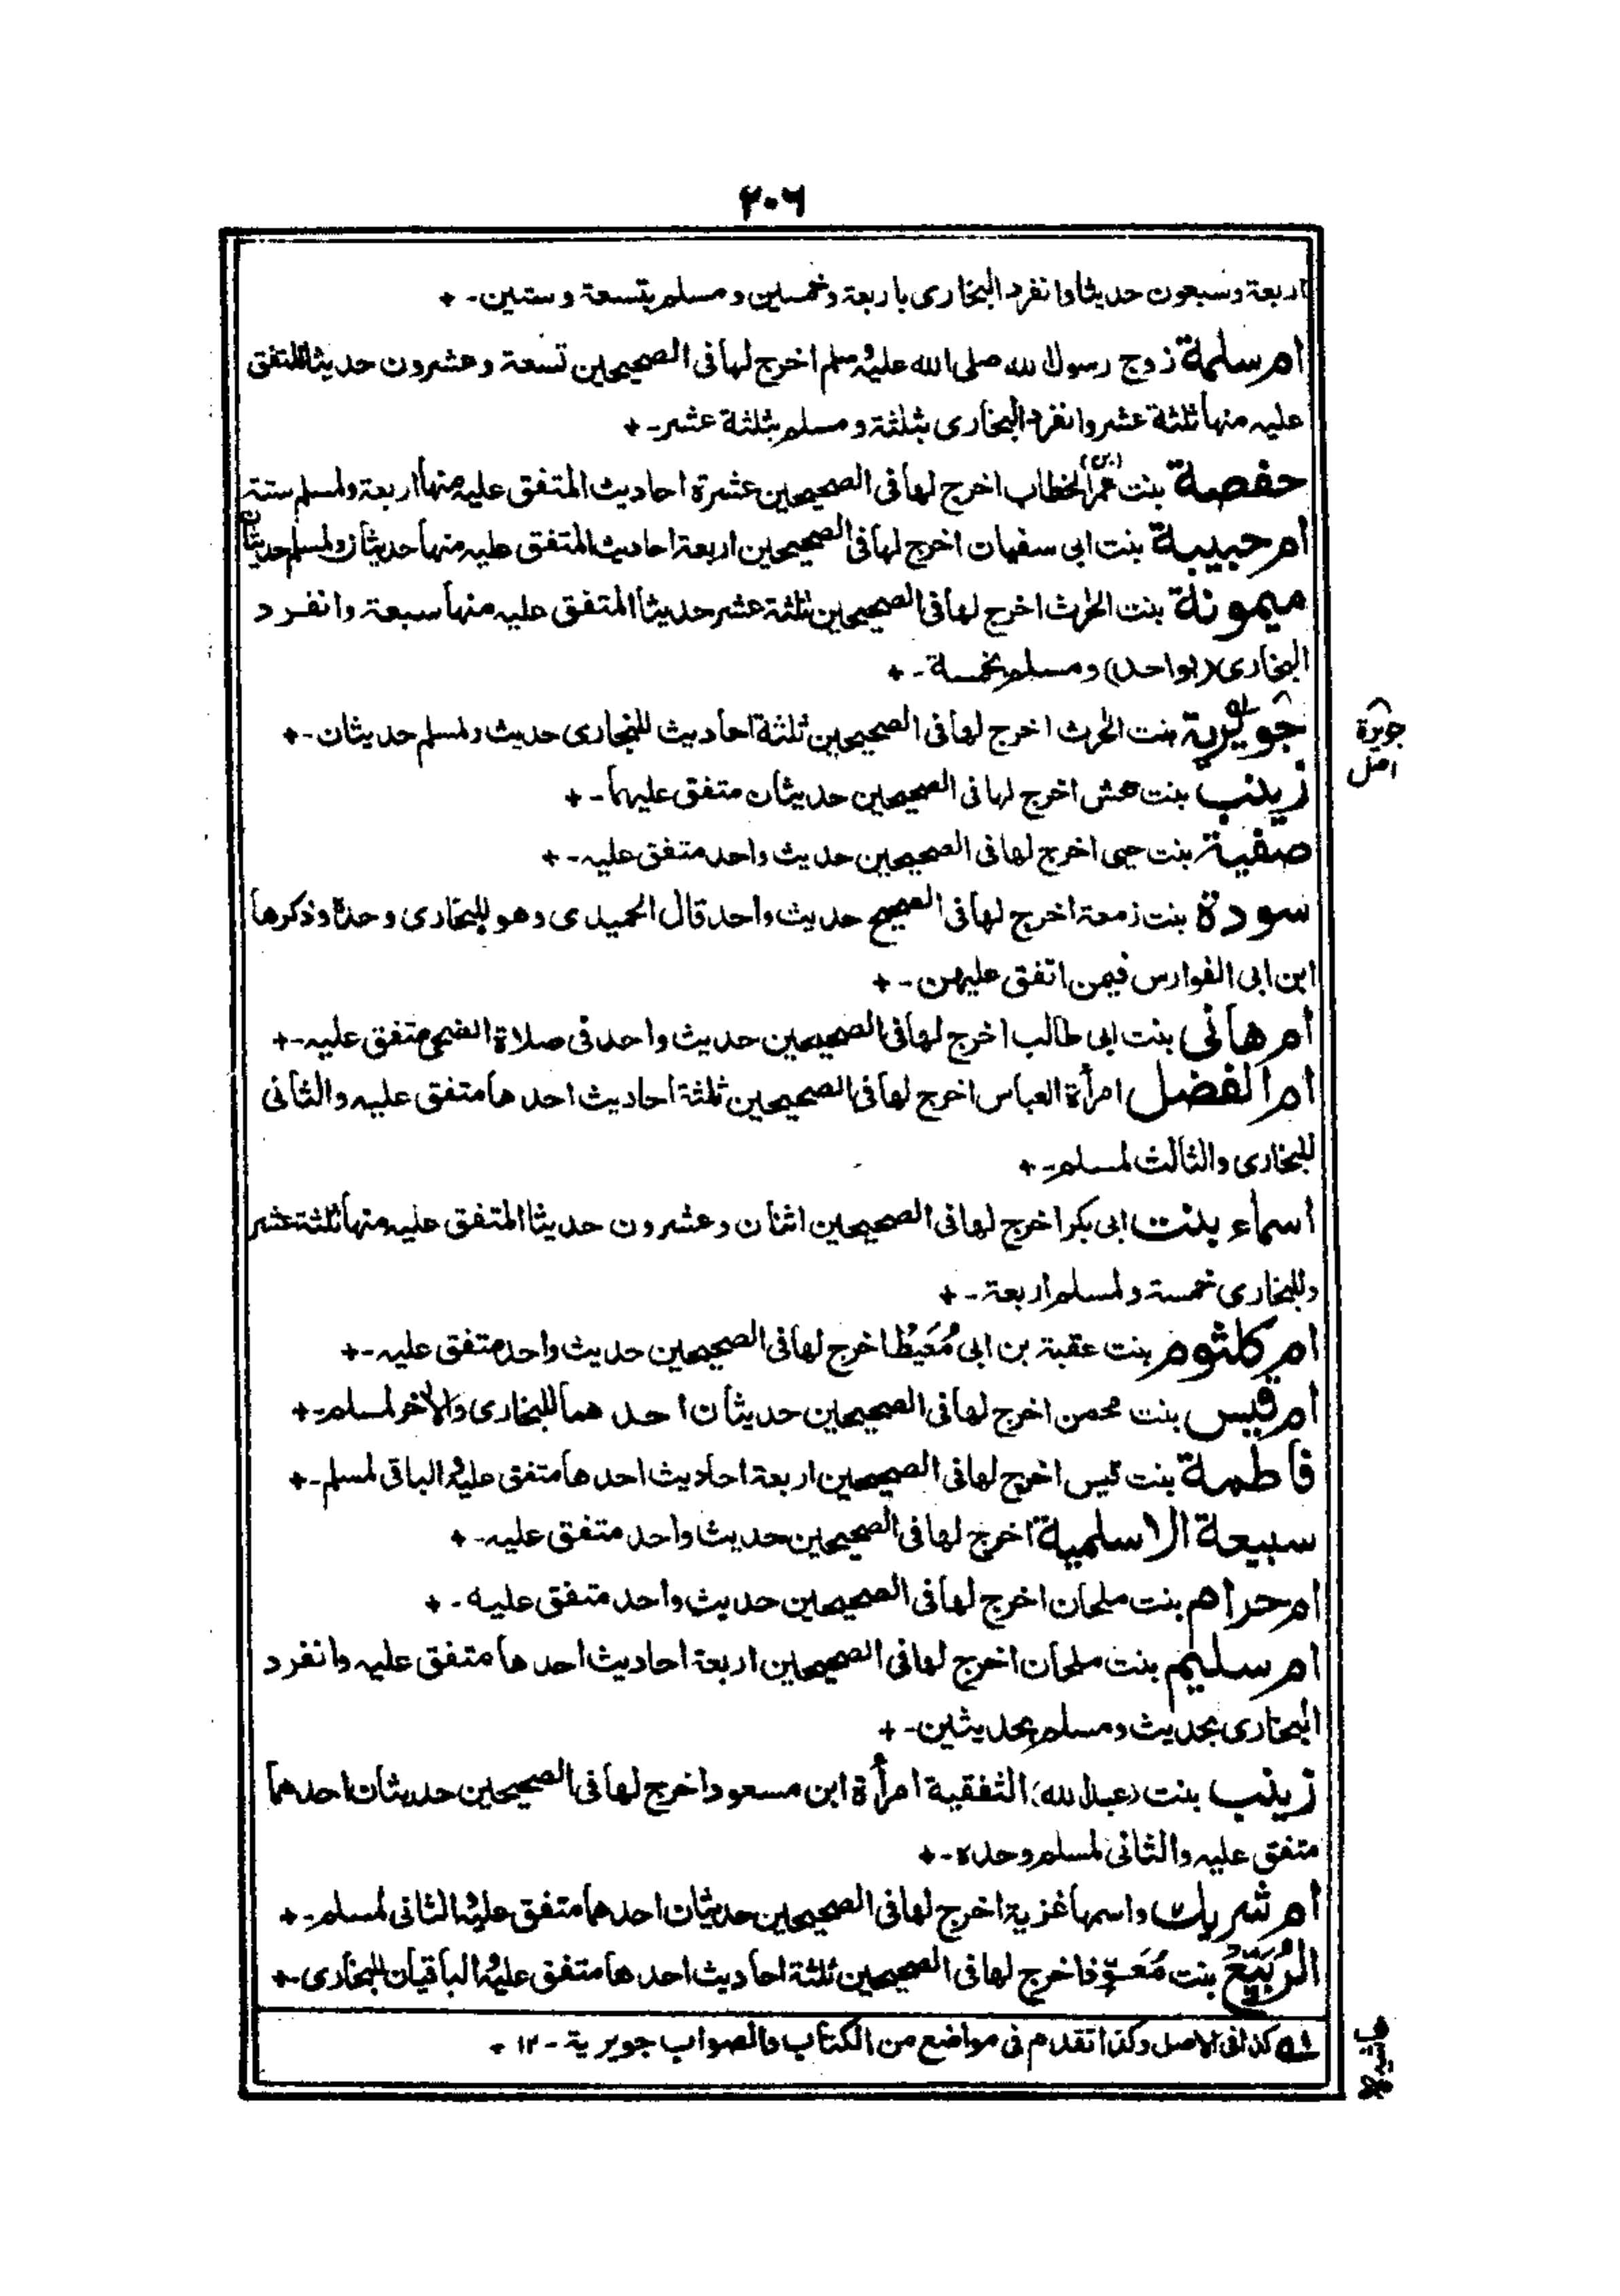 ۲۰۶
اربعة وسبعون حديثا وانفرد البخارى باربعة وخمسين ومسلم بتسعة وستين ـ +
ام سلمة زوج رسول الله صلى الله عليه وسلم اخرج لها فى الصحيحين تسعة وعشرون حديثا المتفق
عليه منها ثلثة عشر وانفرد البخارى بثلثة ومسلم بثلثة عشر ـ +
حفصة بنت عمر (بن) الخطاب اخرج لها فى الصحيحين عشرة احاديث المتفق عليه منها اربعة ولمسلم ستة
ام حبيبة بنت ابى سفيان اخرج لها فى الصحيحين اربعة احاديث المتفق عليه منها حديثان ولمسلم حديثان
ميمونة بنت الحرث اخرج لها فى الصحيحين ثلثة عشر حديثا المتفق عليه منها سبعة وانفرد
البخارى (بواحد) ومسلم بخمسة ـ +
جويرية بنت الحرث اخرج لها فى الصحيحين ثلثة احاديث للبخارى حديث ولمسلم حديثان ـ +
جويرة
اصل
زينب بنت جحش اخرج لها فى الصحيحين حديثان متفق عليهما ـ +
صفية بنت حيى اخرج لها فى الصحيحين حديث واحد متفق عليه ـ +
سودة بنت زمعة اخرج لها فى الصحيح حديث واحد قال الحميدى وهو للبخارى وحدة وذكرها
ابن ابى الفوارس فيمن اتفق عليهن ـ +
ام هانى بنت ابى طالب اخرج لها فى الصحيحين حديث واحد فى صلاة الضحى متفق عليه ـ +
ام الفضل امرأة العباس اخرج لها فى الصحيحين ثلثة احاديث احدها متفق عليه والثانى
للبخارى والثالث لمسلم ـ +
اسماء بنت ابى بكر اخرج لها فى الصحيحين اثنان وعشرون حديثا المتفق عليه منها ثلثة عشر
وللبخارى خمسة ولمسلم اربعة ـ +
ام كلثوم بنت عقبة بن ابى مُعَيْط اخرج لها فى الصحيحين حديث واحد متفق عليه ـ +
ام قيس بنت محصن اخرج لها فى الصحيحين حديثان احدهما للبخارى والاخر لمسلم ـ +
فاطمة بنت قيس اخرج لها فى الصحيحين اربعة احاديث احدها متفق عليه والباقى لمسلم ـ +
سبيعة الاسلمية اخرج لها فى الصحيحين حديث واحد متفق عليه ـ +
ام حرام بنت ملحان اخرج لها فى الصحيحين حديث واحد متفق عليه ـ +
ام سليم بنت ملحان اخرج لها فى الصحيحين اربعة احاديث احدها متفق عليه وانفرد
البخارى بحديث ومسلم بحديثين ـ +
زينب بنت (عبد الله) الثقفية امرأة ابن مسعود اخرج لها فى الصحيحين حديثان احدهما
متفق عليه والثانى لمسلم وحده ـ +
ام شريك واسمها غزية اخرج لها فى الصحيحين حديثان احدهما متفق عليه والثانى لمسلم ـ +
الرُّبَيِّعُ بنت مُعَوِّذ اخرج لها فى الصحيحين ثلثة احاديث احدها متفق عليه والباقيان للبخارى ـ +
له كذا فى الاصل وكذا تقدم فى مواضع من الكتاب والصواب جويرية ـ ۱۲ +